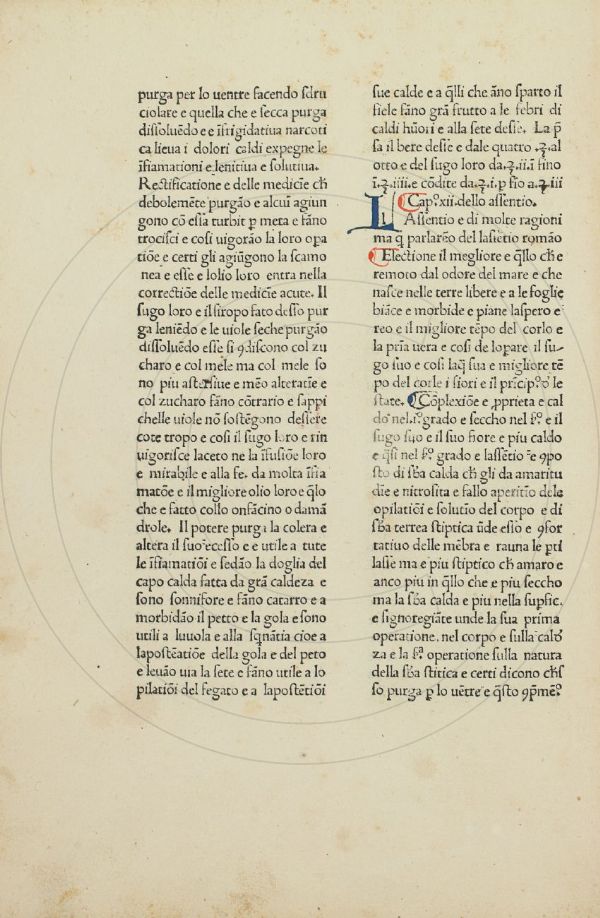 purga per lo uentre facendo ſdru
ciolare e quella che e ſecca purga
diſſoluēdo e e īſrigidatiua narcoti
ca lieua i dolori caldi expegne le
īfiamationi e lenitiua e ſolutiua.
Rectificatione e delle medicīe cħ
debolemēte purgāo e alcuī agiun
gono cō eſſa turbit p meta e fāno
trociſci e coſi uigorāo la loro opa
tiōe e certi gli agiūgono la ſcamo
nea e eſſe e lolio loro entra nella
correctiōe delle medicīe acute. Il
ſugo loro e il ſiropo fato deſſo pur
ga leniēdo e le uiole ſeche purgāo
diſſoluēdo eſſe ſi ꝯdiſcono col zu
charo e col mele ma col mele ſo
no piu asterſiue e mēo alteratīe e
col zucharo fāno cōtrario e ſappi
chelle uiole nō ſoſtēgono deſſere
cote tropo e coſi il ſugo loro e rin
uigoriſce laceto ne la īfuſiōe loro
e mirabile e alla fe. da molta īfia
matōe e il migliore olio loro e q̄lo
che e fatto collo onfācino o damā
drole. Il potere purga la colera e
altera il ſuo eceſſo e e utile a tute
le īfiamatiōi e ſedāo la doglia del
capo calda fatta da grā caldeza e
ſono ſonnifore e fāno catarro e a
morbidāo il petto e la gola e ſono
utili a luuola e alla ſq̄natia cioe a
lapoſtēatiōe della gola e del peto
e leuāo uia la ſete e fāno utile a lo
pilatiōi del fegato e a lapoſtētiōi
ſue calde e a q̄lli che āno ſparto il
fiele fāno grā frutto a le febri di
caldi hūori e alla ſete deſſe. La p̄
ſa il bere deſſe e dale quatro .ʒ. al
otto e del ſugo loro da.ʒ.ii.ī fino
ī.ʒ.iiii. e cōdite da.ʒ.i. p fio a.ʒ.iii
Cap°.xii. dello aſſentio.
LAſſentio e di molte ragioni
ma q̄ parlarēo del laſētio romāo
Electione il megliore e q̄llo che e
remoto dal odore del mare e che
naſce nelle terre libere e a le foglie
biāce e morbide e piane laſpero e
reo e il migliore tēpo del corlo e
la prīa uera e coſi de lopare il ſu-
go ſuo e coſi laq̄ ſua e migliore tē
po del corle i fiori e il prīcip° d le
ſtate. Cōplexiōe e ꝓprieta e cal
do nel.i°. grado e ſeccho nel ſ°. e il
ſugo ſuo e il ſuo fiore e piu caldo
e q̄ſi nel ſ°. grado e laſſētio e ꝯpo
ſto di ſb̄a calda cħ gli da amaritu
dīe e nitroſita e fallo aperitīo dele
opilatiōi e ſolutīo del corpo e di
ſb̄a terrea ſtiptica ūde eſſo e ꝯfor
tatiuo delle mēbra e rauna le pti
laſſe ma e piu ſtiptico cħ amaro e
anco piu in q̄llo che e piu ſeccho
ma la ſb̄a calda e piu nella ſupfic.
e ſignoregiāte unde la ſua prima
operatione. nel corpo e ſulla calō
za e la ſ°. operatione ſulla natura
della ſb̄a ſtitica e certi dicono cħſ
ſo purga p lo uētre e q̄ſto ꝯpmē°